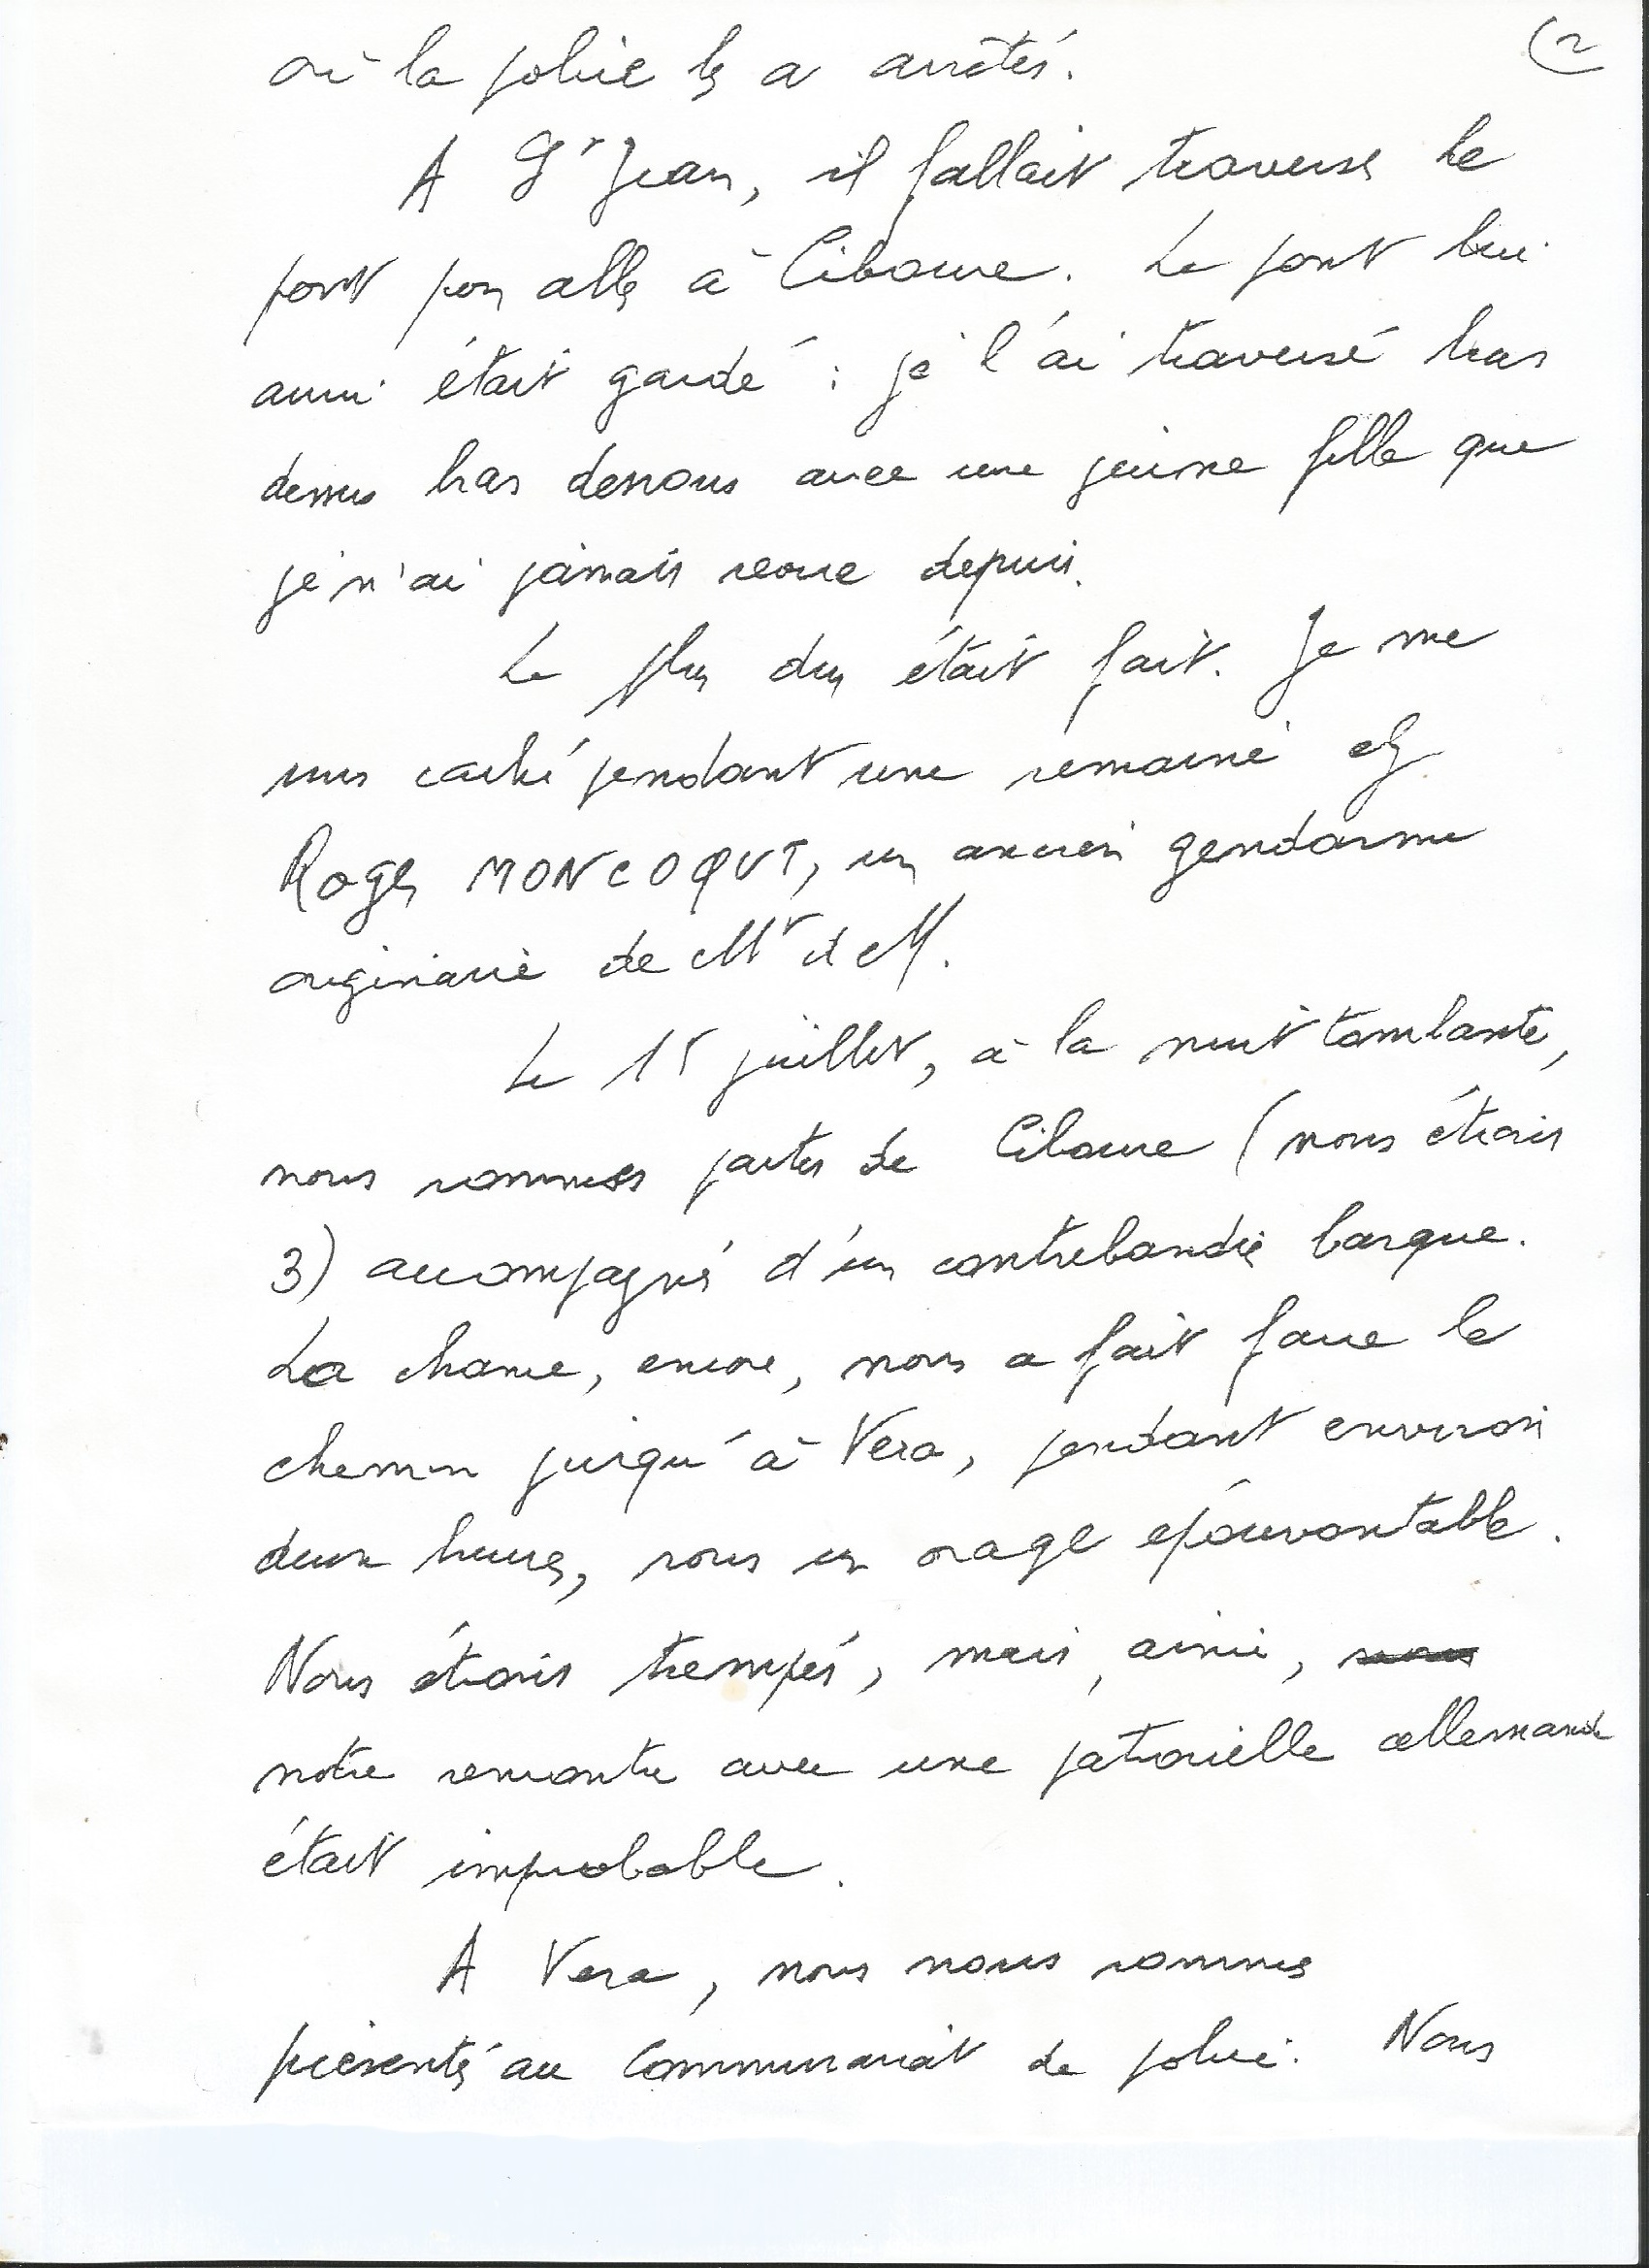 (2
où la police les a arrêtés.
A St Jean, il fallait traverser le
pont pour aller à Ciboure. Le pont lui
aussi était gardé : je l'ai traversé bras
dessus bras dessous avec une jeune fille que
je n'ai jamais revue depuis.
Le plus dur était fait. Je me
suis caché pendant une semaine chez
Roger MONCOQUT, un ancien gendarme
originaire de Mt de M.
Le 15 juillet, à la nuit tombante,
nous sommes partis de Ciboure (nous étions
3) accompagnés d'un contrebandier basque.
La chance, encore, nous a fait faire le
chemin jusqu'à Vera, pendant environ
deux heures, sous un orage épouvantable.
Nous étions trempés, mais, ainsi,
notre rencontre avec une patrouille allemande
était improbable.
A Vera, nous nous sommes
présentés au Commissariat de police. Nous